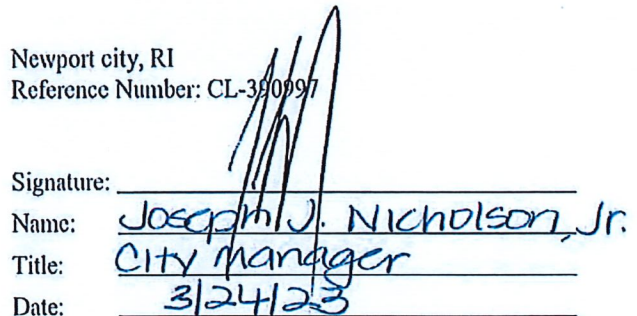 Newport city, RI
Reference Number: CL-390997
Signature:
Name: Joseph J. Nicholson, Jr.
Title: City Manager
Date: 3/24/23